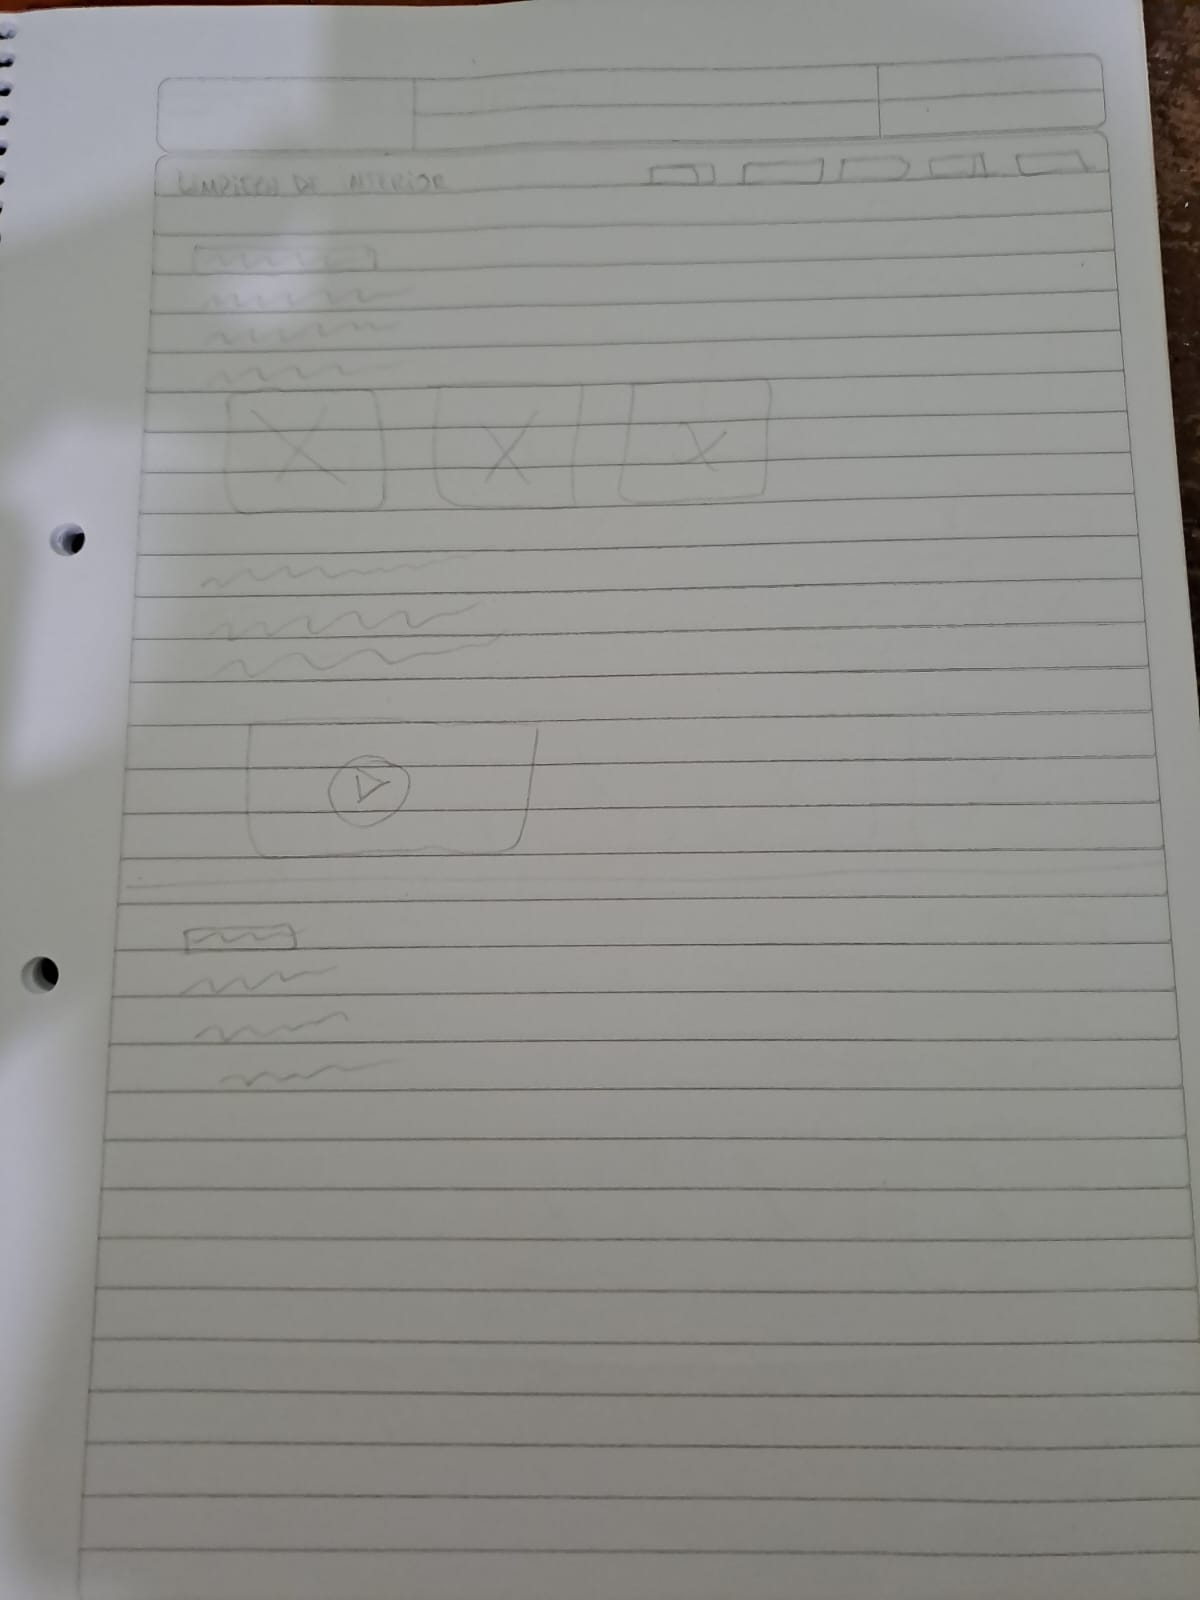 LIMPIEZA DE INTERIOR